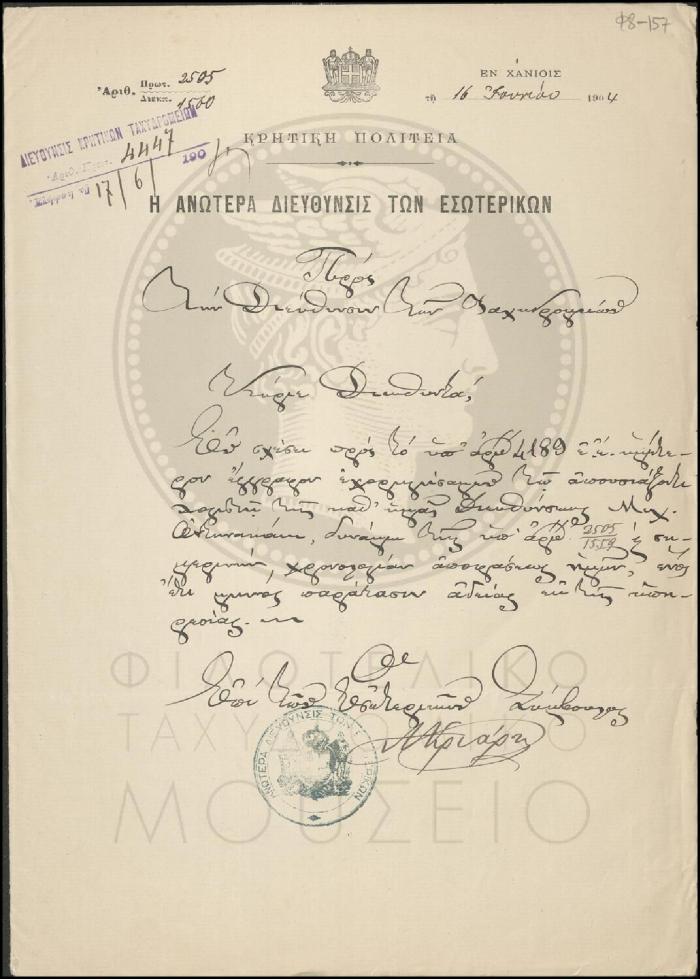 Φ8-157
Ἀριθ. Πρωτ. 2505
Διεκπ. 1500
ΕΝ ΧΑΝΙΟΙΣ
τῇ 16 Ἰουνίου 1904
ΔΙΕΥΘΥΝΣΙΣ ΚΡΗΤΙΚΩΝ ΤΑΧΥΔΡΟΜΕΙΩΝ
Ἀριθ. Πρωτ. 4447
Ἐλήφθη τῇ 17/6/ 190
ΚΡΗΤΙΚΗ ΠΟΛΙΤΕΙΑ
Η ΑΝΩΤΕΡΑ ΔΙΕΥΘΥΝΣΙΣ ΤΩΝ ΕΣΩΤΕΡΙΚΩΝ
Πρός
Τὴν Διεύθυνσιν τῶν Ταχυδρομείων
Κύριε Διευθυντά,
Ἐν σχέσει πρὸς τὸ ὑπ' ἀριθ. 4189 ἐ.ἔ. ὑμέτε-
ρον ἔγγραφον ἐχορηγήσαμεν τῷ ἀπουσιάζοντι
τῆς καθ' ὑμᾶς Διευθύνσεως Μιχ.
δυνάμει τῆς ὑπ' ἀριθ. 2505/1559 ἐ. ση-
μερινὴν χρονολογίαν ἀποφάσεως ἡμῶν, ἑνὸς
ἔτι μηνὸς παράτασιν ἀδείας ἐκ τῆς ὑπη-
ρεσίας.
Ὁ
Ἐπὶ τῶν Ἐσωτερικῶν Σύμβουλος
ΑΝΩΤΕΡΑ ΔΙΕΥΘΥΝΣΙΣ ΤΩΝ ΕΣΩΤΕΡΙΚΩΝ
ΦΙΛΟΤΕΛΙΚΟ
ΤΑΧΥΔΡΟΜΙΚΟ
ΜΟΥΣΕΙΟ